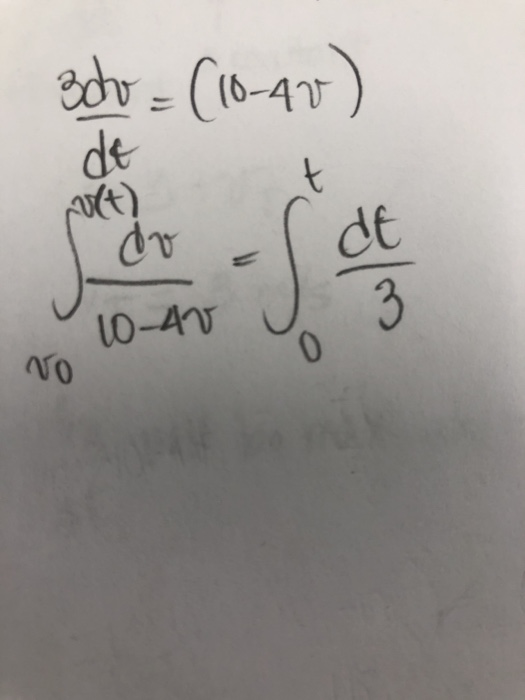 3dv/dt = (10-4v)
∫_{v0}^{v(t)} dv/(10-4v) = ∫_0^t dt/3